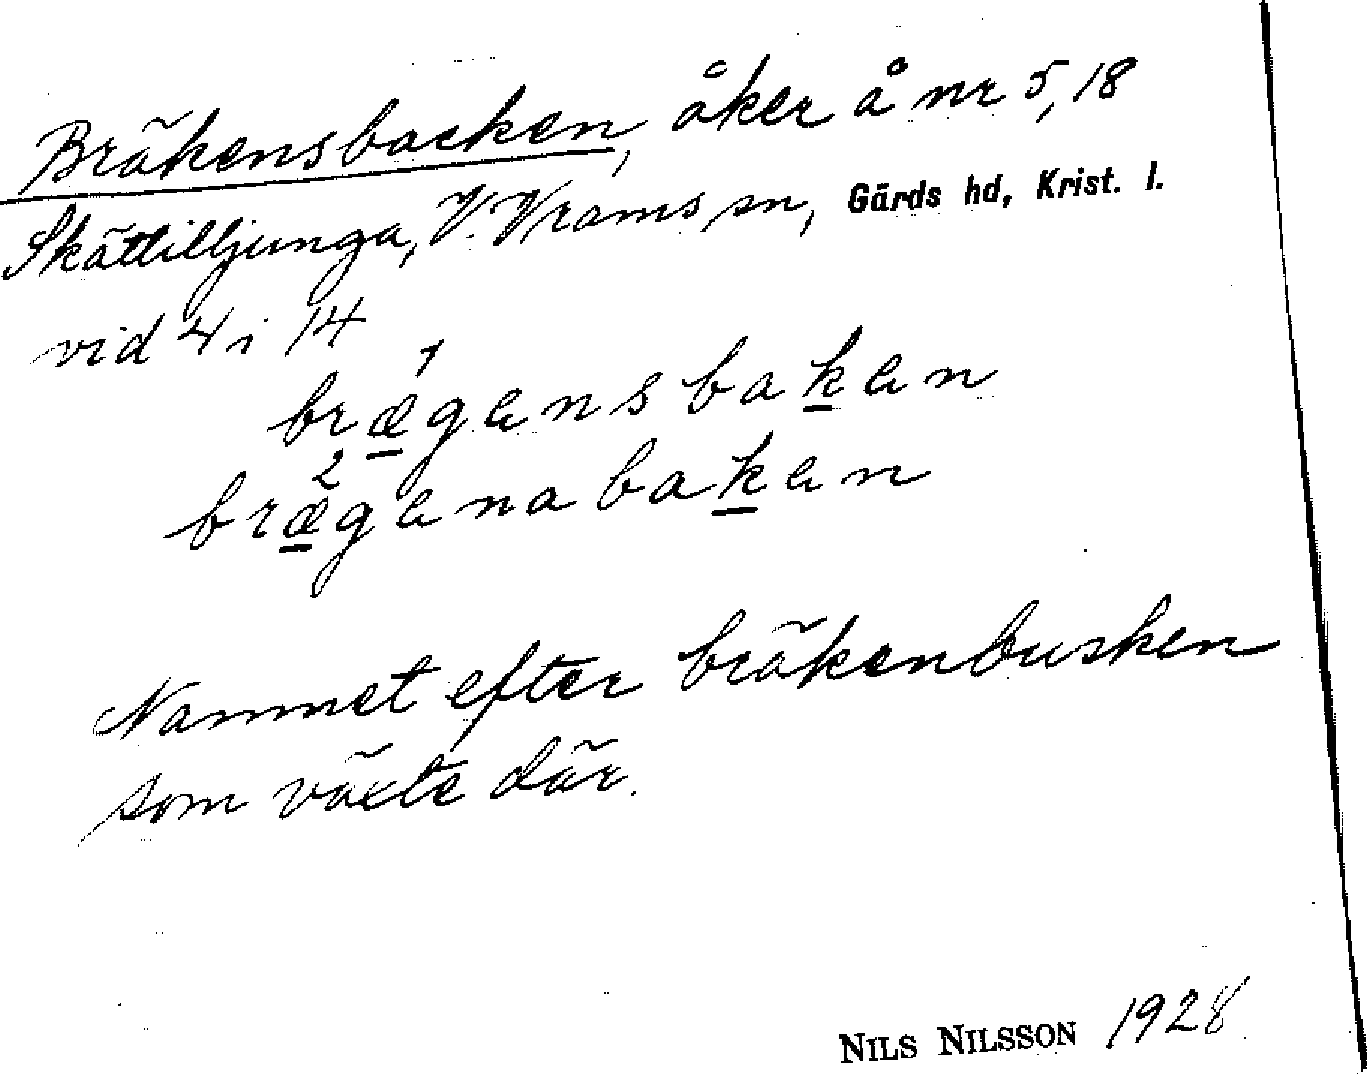 Bräkensbacken, åker å nr 5, 18
Skättilljunga, V. Vrams sn, Gärds hd, Krist. l.
vid 4 i 14
bræ¹gensbaken
bræ²genabaken
Namnet efter bräkenbusken
som växte där.
NILS NILSSON 1928